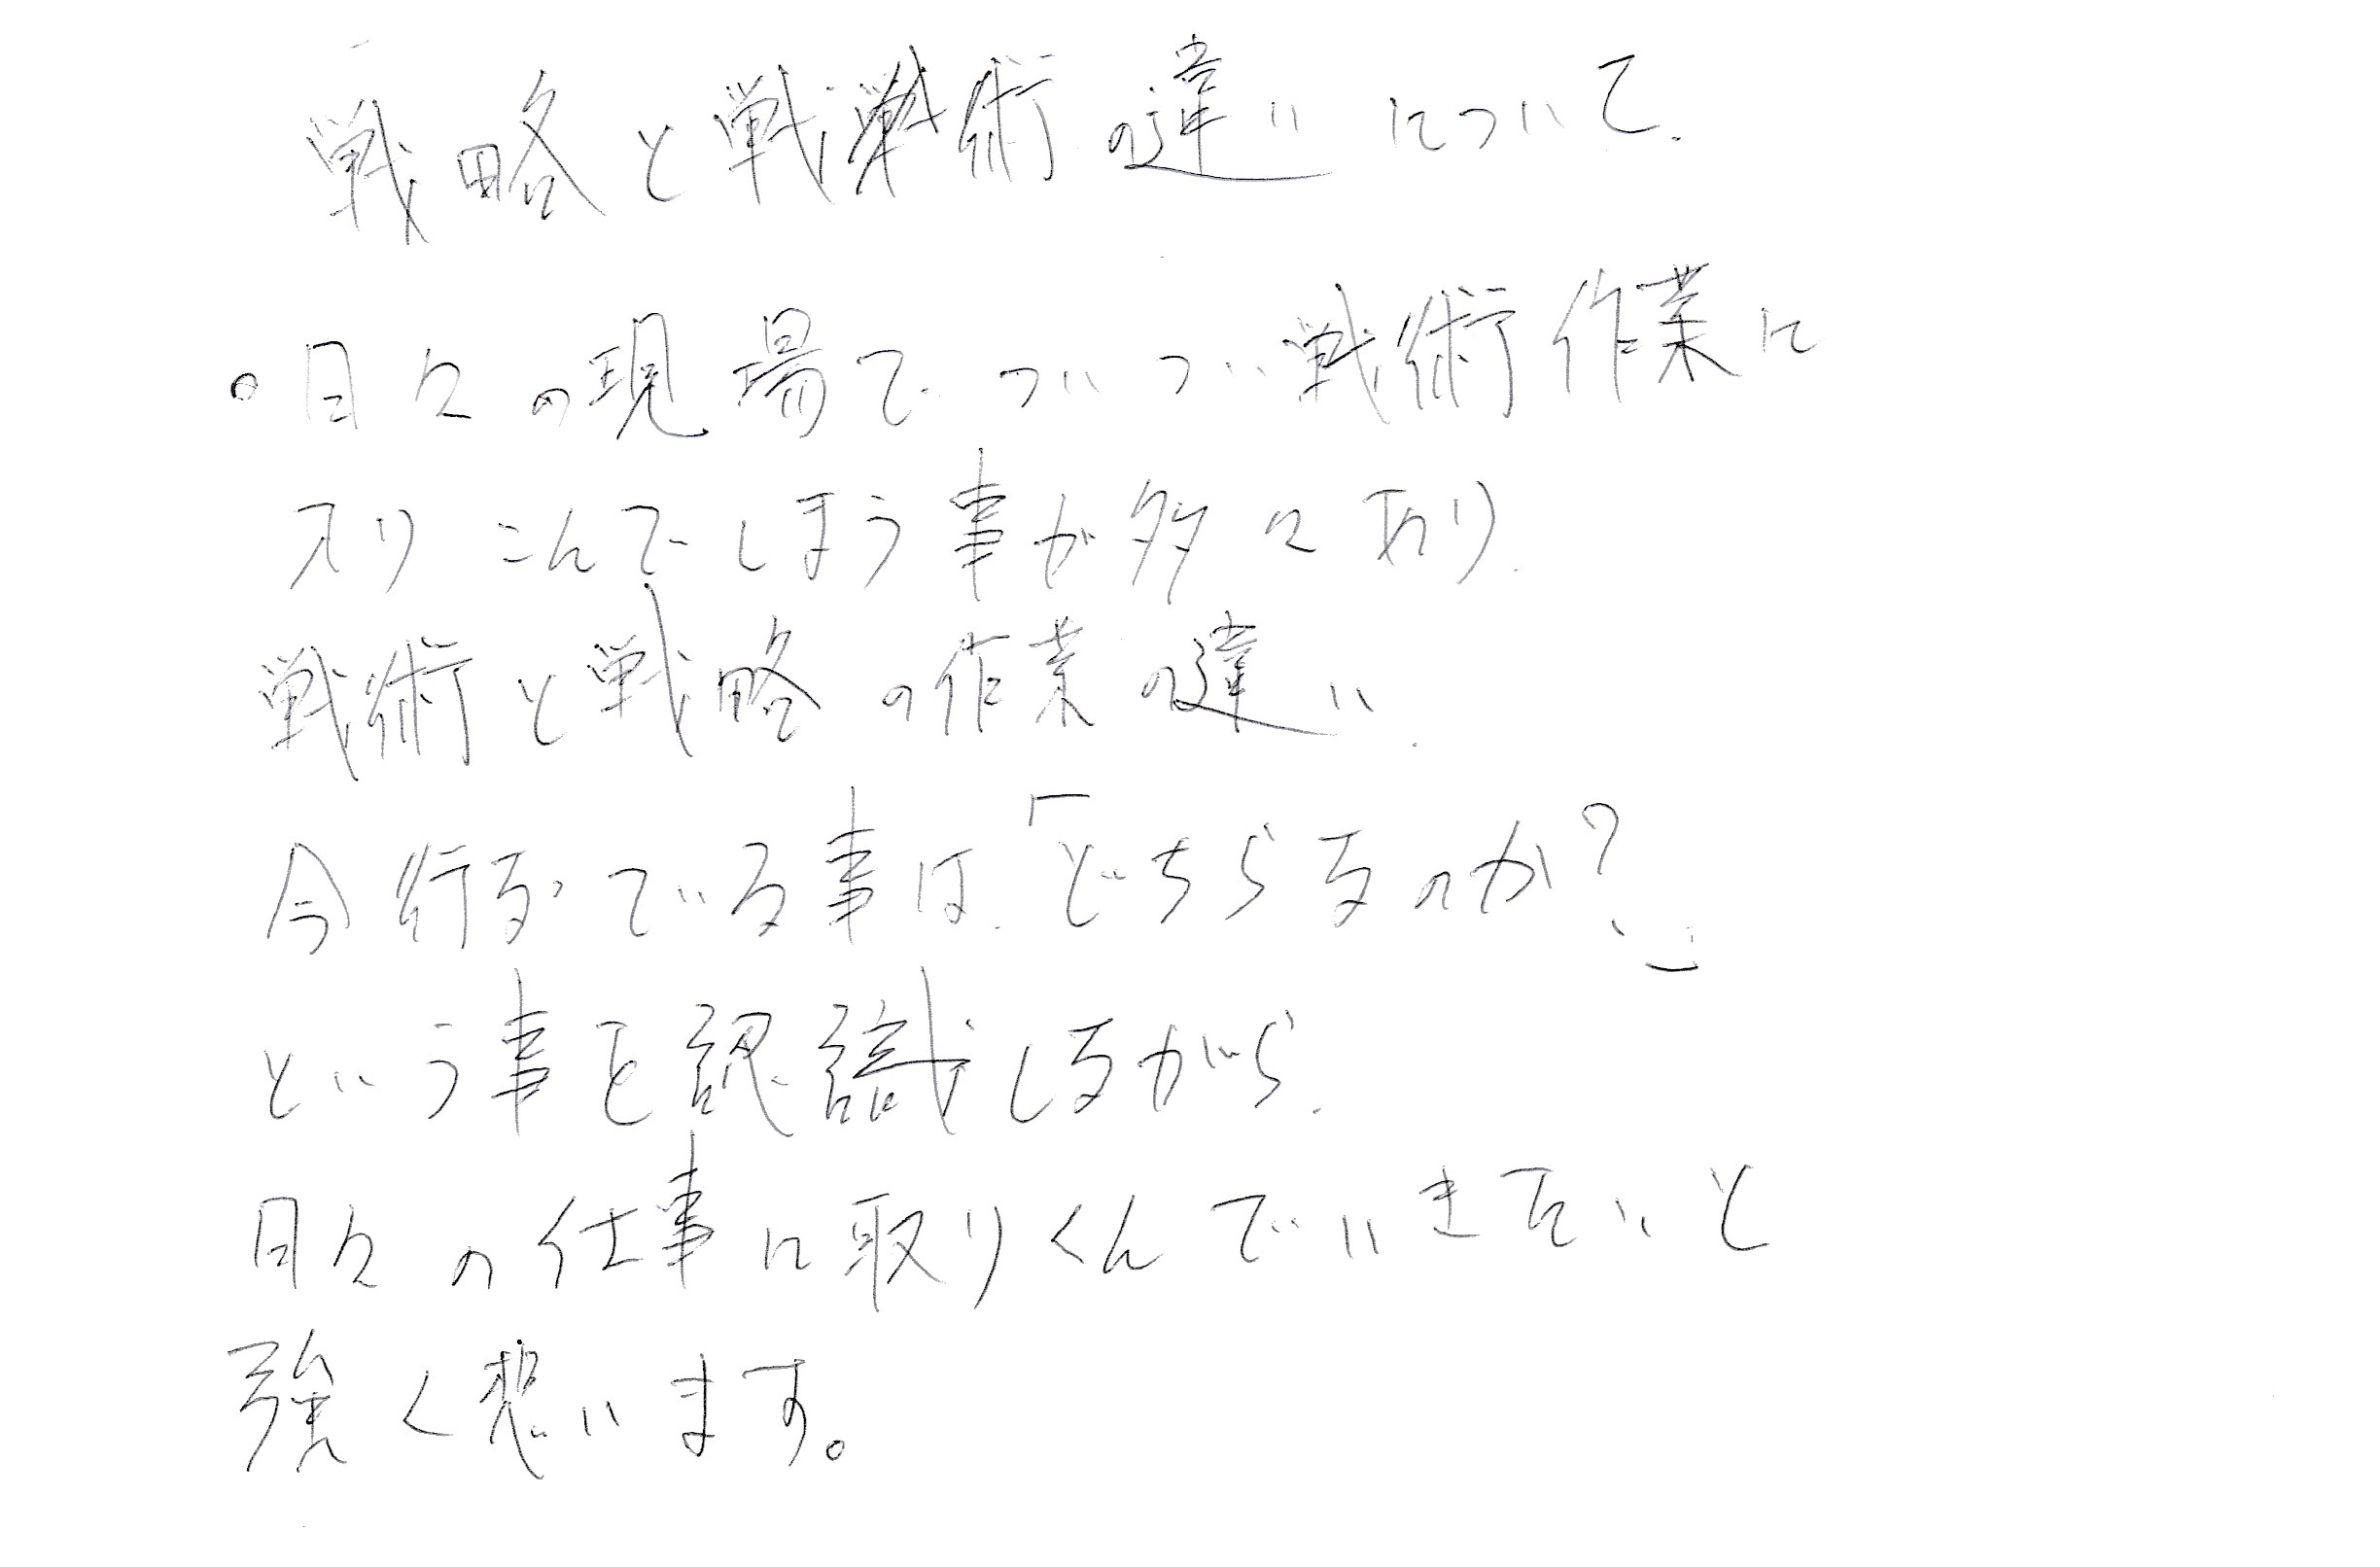 戦略と戦術の違いについて、
○日々の現場で、ついつい戦術作業に
入りこんでしまう事が多々有り、
戦術と戦略の作業の違い、
今行なっている事は、「どちらなのか？」
という事を認識しながら、
日々の仕事に取りくんでいきたいと
強く想います。